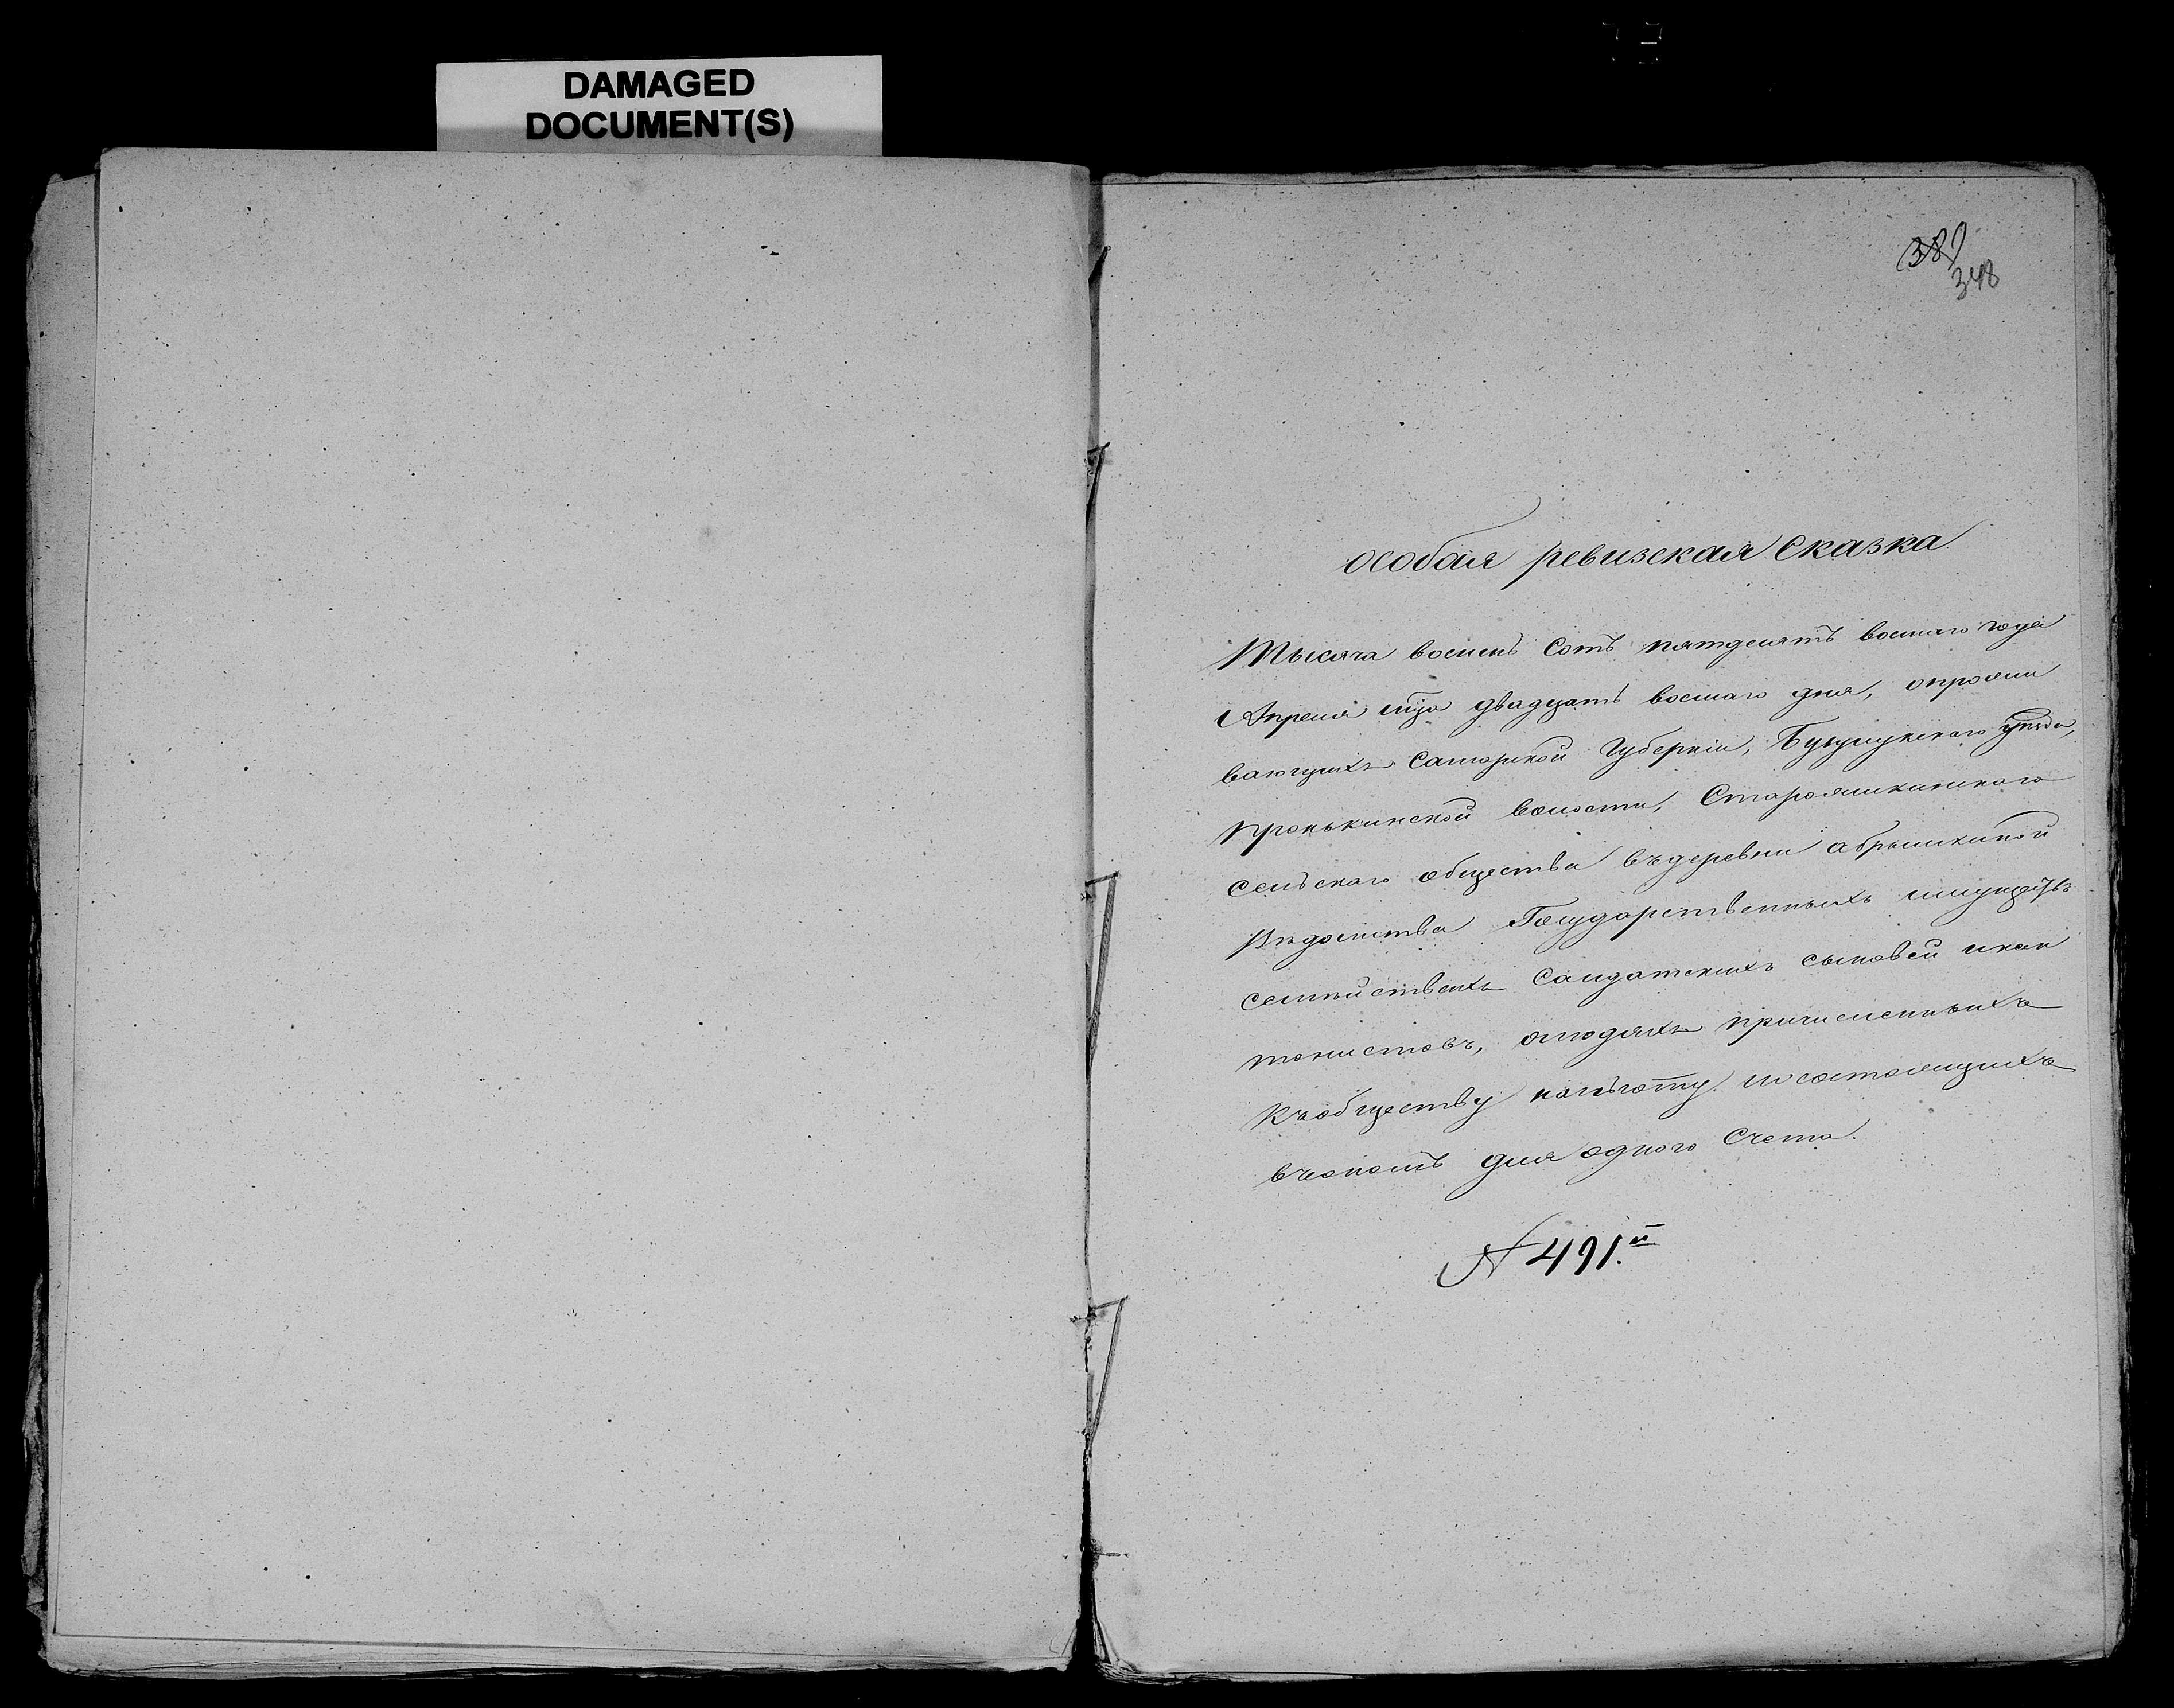 DAMAGED
DOCUMENT(S)
389
348
Особая ревизская сказка.
Тысяча восемь сотъ пятдесятъ восмаго года
Апреля мца двадцать восмаго дня, о прожи
вающихъ Самарской Губерніи, Бузулукскаго уѣзда,
Пронькинской волости,
сельскаго общества въ деревни Абрышкиной
Вѣдомства Государственныхъ имуществъ
семействахъ Салдатскихъ сыновей и кан
тонистовъ, о людяхъ причисленныхъ
къ обществу на льготу и состоящихъ
въ ономъ для одного счета.
№ 491.й